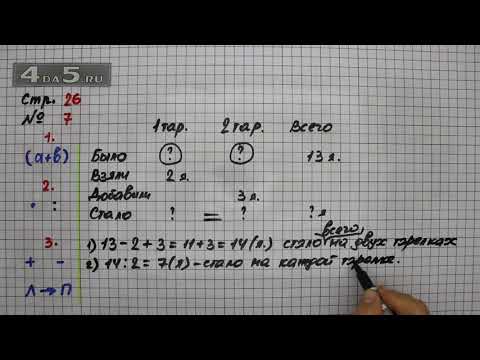 4DA5.RU
Стр. 26
№ 7
1.
(а+в)
2.
· :
3.
+ -
Л → П
1 тар. 2 тар. Всего
Было ? ? 13 я.
Взяли 2 я.
Добавили 3 я.
Стало ? = ? ? я
1) 13 - 2 + 3 = 11 + 3 = 14 (я.) стало всего на двух тарелках
2) 14 : 2 = 7 (я) - стало на каждой тарелке.